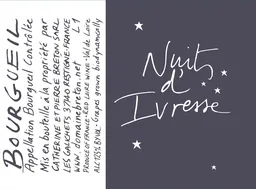 BOURGUEIL
Appellation Bourgueil Contrôlée
Mis en bouteille à la propriété par
CATHERINE ET PIERRE BRETON SARL
LES GALICHETS 37140 RESTIGNÉ-FRANCE
www.domainebreton.net L1
PRODUCE OF FRANCE-RED LOIRE WINE-Val de Loire
ALC 12%BY VOL. Grapes grown biodynamically
Nuits
d'
Ivresse